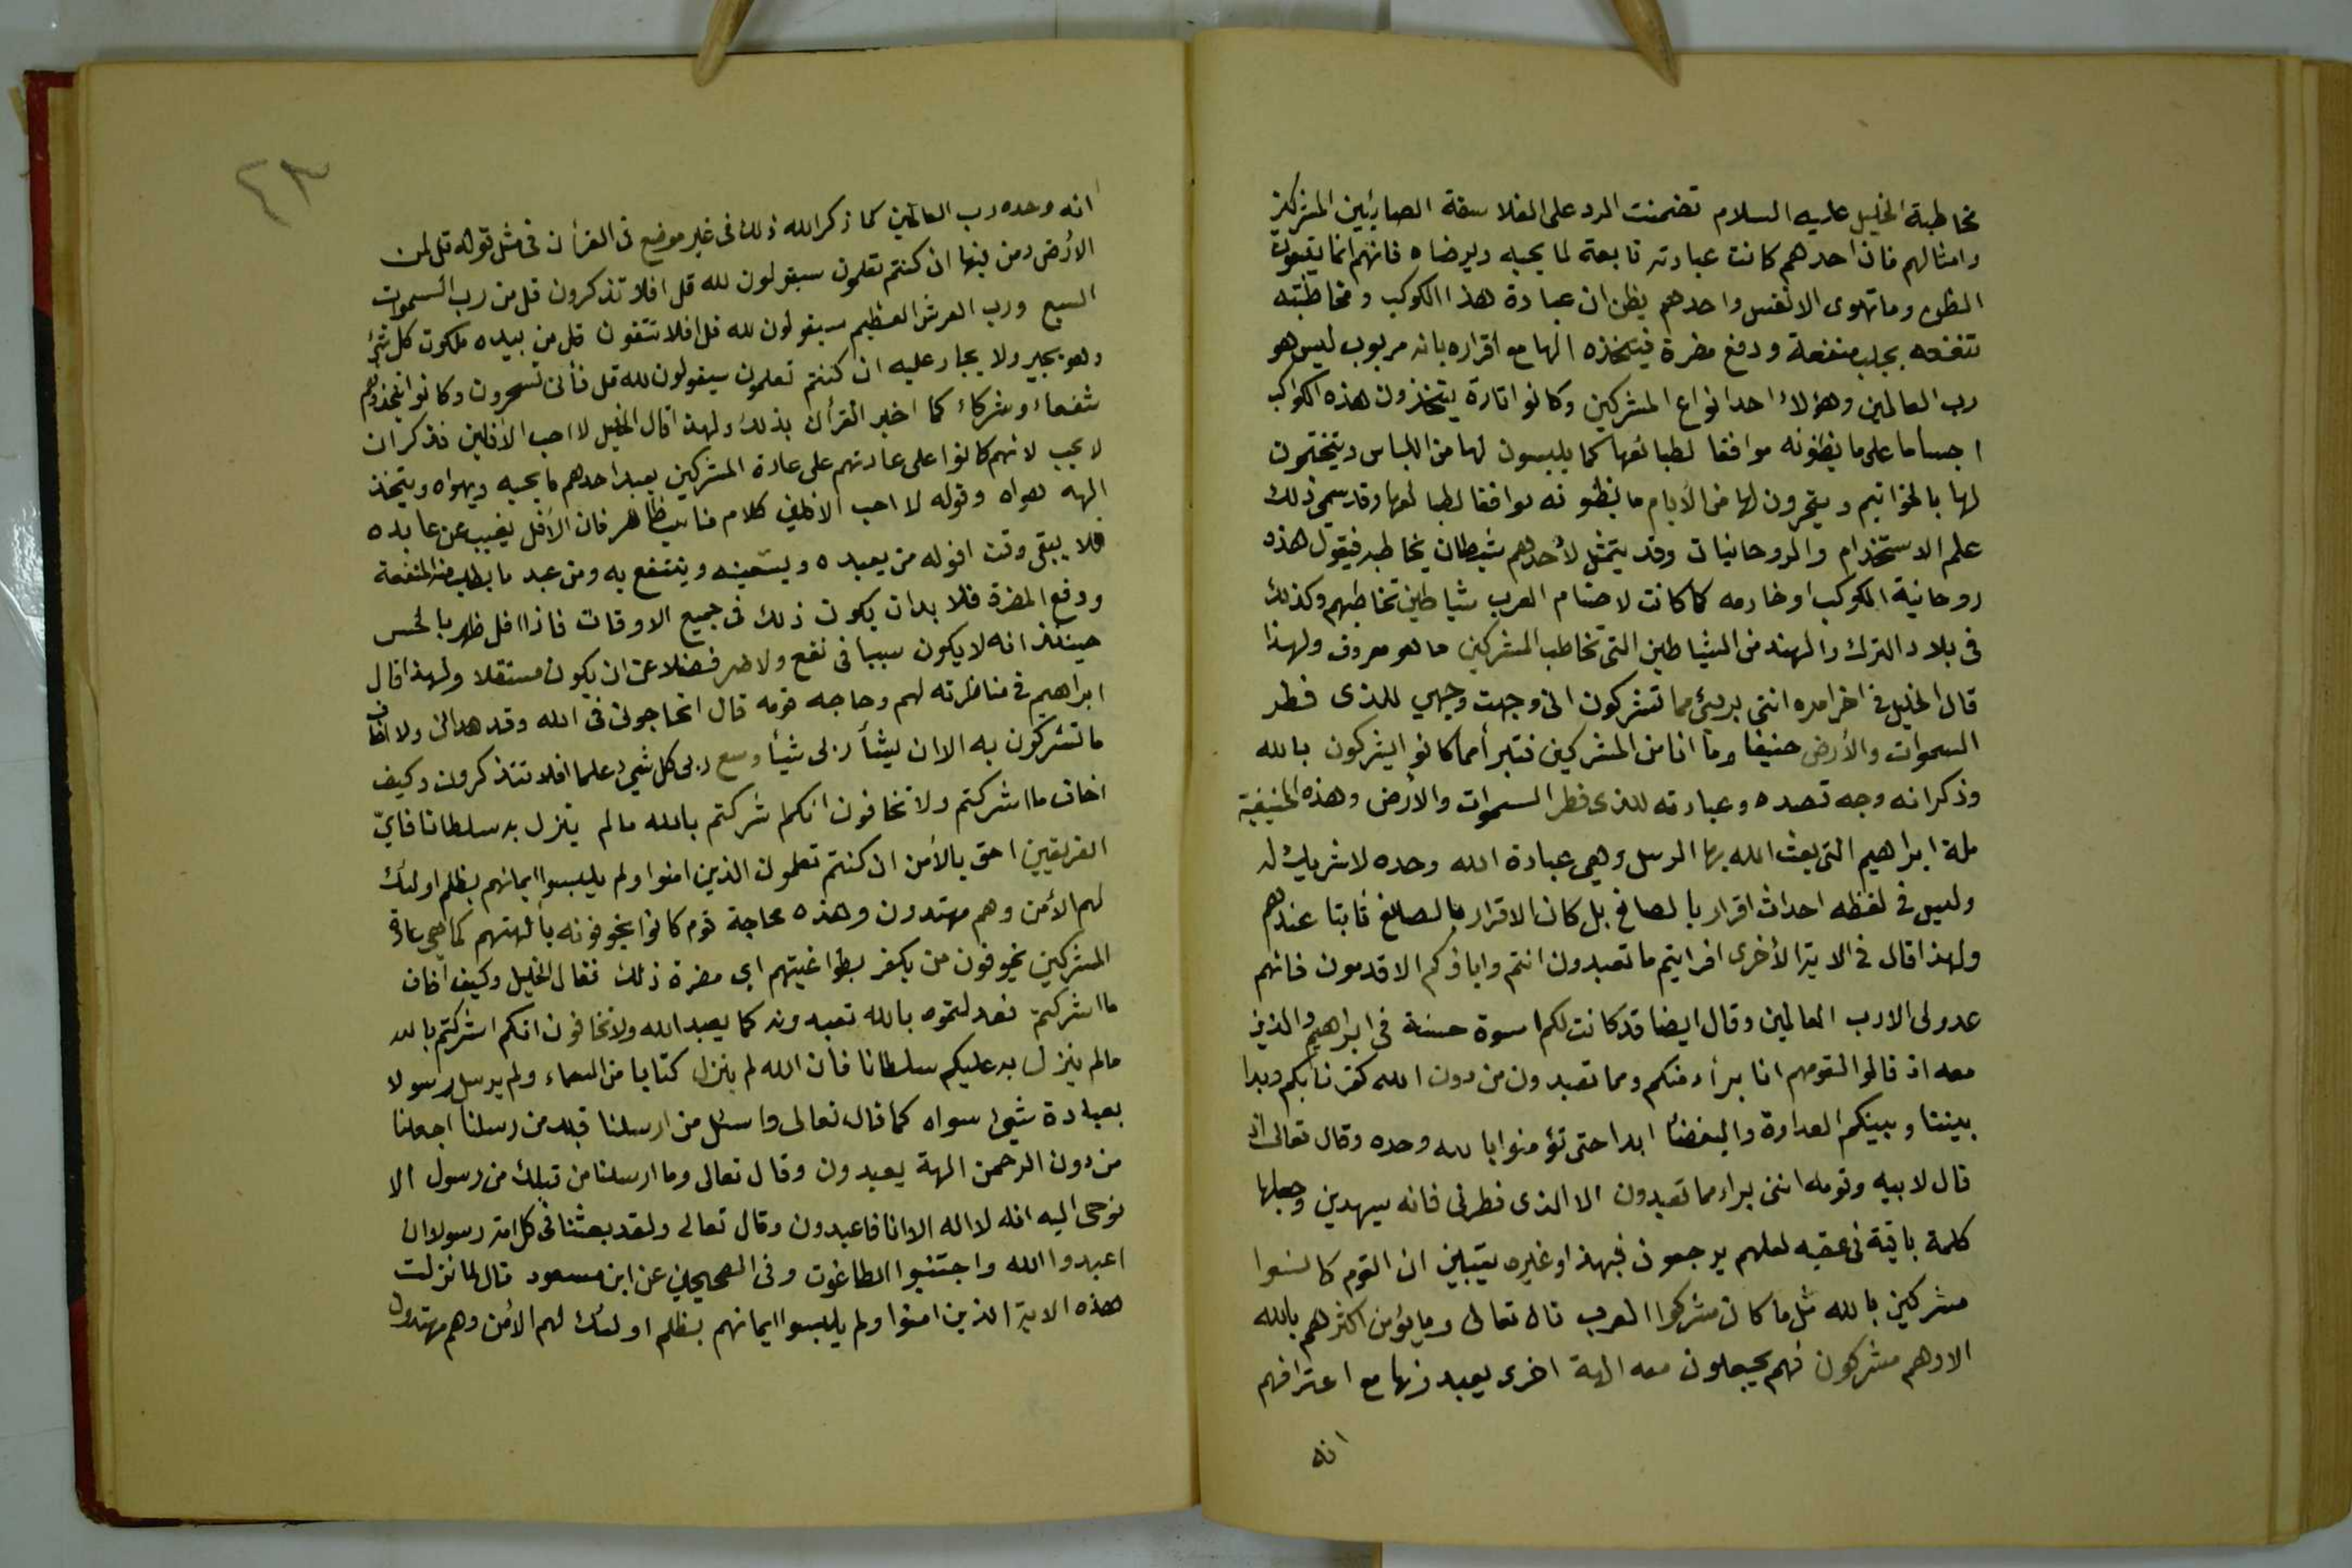 مخاطبة الخليل عليه السلام تضمنت الرد على الفلاسفة الصابئين المشركين
وامثالهم فان احدهم كانت عبادته تابعة لما يحبه ويرضاه فانهم انما يتبعون
الظن وما تهوى الانفس واحدهم يظن ان عبادة هذا الكوكب ومخاطبته
تنفعه بجلب منفعة ودفع مضرة فيتخذه الها مع اقراره بانه مربوب ليس هو
رب العالمين وهؤلاء احد انواع المشركين وكانوا تارة يتخذون هذه الكواكب
اجساما على ما يظنونه موافقا لطبائعها كما يلبسون لها من اللباس ويتختمون
لها بالخواتيم ويتحرون لها من الأيام ما يظنونه موافقا لطبائعها وقد سمي ذلك
علم الاستخدام والروحانيات وقد يتمثل لأحدهم شيطان يخاطبه فيقول هذه
روحانية الكوكب او خادمه كما كانت لاصنام العرب شياطين تخاطبهم وكذلك
في بلاد الترك والهند من الشياطين التي تخاطب المشركين ما هو معروف ولهذا
قال الخليل في اخر امره انني بريئ مما تشركون اني وجهت وجهي للذي فطر
السموات والأرض حنيفا وما انا من المشركين فتبرأ مما كانوا يشركون بالله
وذكر انه وجه قصده وعبادته للذي فطر السموات والأرض وهذه الحنيفية
ملة ابراهيم التي بعث الله بها الرسل وهي عبادة الله وحده لا شريك له
وليس في لفظه احداث اقرار بالصانع بل كان الاقرار بالصانع ثابتا عندهم
ولهذا قال في الاية الأخرى افرايتم ما تعبدون انتم واباؤكم الاقدمون فانهم
عدو لي الا رب العالمين وقال ايضا قد كانت لكم اسوة حسنة في ابراهيم والذين
معه اذ قالوا لقومهم انا برأء منكم ومما تعبدون من دون الله كفرنا بكم وبدا
بيننا وبينكم العداوة والبغضا ابدا حتى تؤمنوا بالله وحده وقال تعالى اذ
قال لابيه وقومه انني براء مما تعبدون الا الذي فطرني فانه سيهدين وجعلها
كلمة باقية في عقبه لعلهم يرجعون فبهذا وغيره يتبين ان القوم كانوا
مشركين بالله مثل ما كان مشركوا العرب قال تعالى وما يؤمن اكثرهم بالله
الا وهم مشركون فهم يجعلون معه الهة اخرى يعبدونها مع اعترافهم
انه
٤٣
انه وحده رب العالمين كما ذكر الله ذلك في غير موضع في القرأن في مثل قوله قل لمن
الأرض ومن فيها ان كنتم تعلمون سيقولون لله قل افلا تذكرون قل من رب السموات
السبع ورب العرش العظيم سيقولون لله قل افلا تتقون قل من بيده ملكوت كل شئ
وهو يجير ولا يجار عليه ان كنتم تعلمون سيقولون لله قل فأنى تسحرون وكانوا يتخذوهم
شفعاء وشركاء كما اخبر القرأن بذلك ولهذا قال الخليل لا احب الأفلين فذكر ان
لا يحب لانهم كانوا على عادتهم على عادة المشركين يعبد احدهم ما يحبه ويهواه ويتخذ
الهه هواه وقوله لا احب الافلين كلام مناسب ظاهر فان الأفل يغيب عن عابده
فلا يبقى وقت افوله من يعبده ويستعينه وينتفع به ومن عبد ما يطلب منه المنفعة
ودفع المضرة فلا بد ان يكون ذلك في جميع الاوقات فاذا افل ظهر بالحس
حينئذ انه لا يكون سببا في نفع ولا ضر فضلا عن ان يكون مستقلا ولهذا قال
ابراهيم في مناظرته لهم وحاجه قومه قال اتحاجوني في الله وقد هدان ولا اخاف
ما تشركون به الا ان يشأ ربي شيأ وسع ربي كل شيء علما افلا تتذكرون وكيف
اخاف ما اشركتم ولا تخافون انكم اشركتم بالله ما لم ينزل به سلطانا فايّ
الفريقين احق بالأمن ان كنتم تعلمون الذين امنوا ولم يلبسوا ايمانهم بظلم اولئك
لهم الأمن وهم مهتدون وهذه محاجة قوم كانوا يخوفونه بألهتهم كما هي عادة
المشركين يخوفون من يكفر بطواغيتهم اي مضرة ذلك فقال الخليل وكيف اخاف
ما اشركتم فعدلتموه بالله تعبدونه كما يعبد الله ولا تخافون انكم اشركتم بالله
ما لم ينزل به عليكم سلطانا فان الله لم ينزل كتابا من السماء ولم يرسل رسولا
بعبادة شيئ سواه كما قال تعالى واسئل من ارسلنا قبلك من رسلنا اجعلنا
من دون الرحمن الهة يعبدون وقال تعالى وما ارسلنا من قبلك من رسول الا
نوحى اليه انه لا اله الا انا فاعبدون وقال تعالى ولقد بعثنا في كل امة رسولا ان
اعبدوا الله واجتنبوا الطاغوت وفي الصحيحين عن ابن مسعود قال لما نزلت
هذه الاية الذين امنوا ولم يلبسوا ايمانهم بظلم اولئك لهم الأمن وهم مهتدون